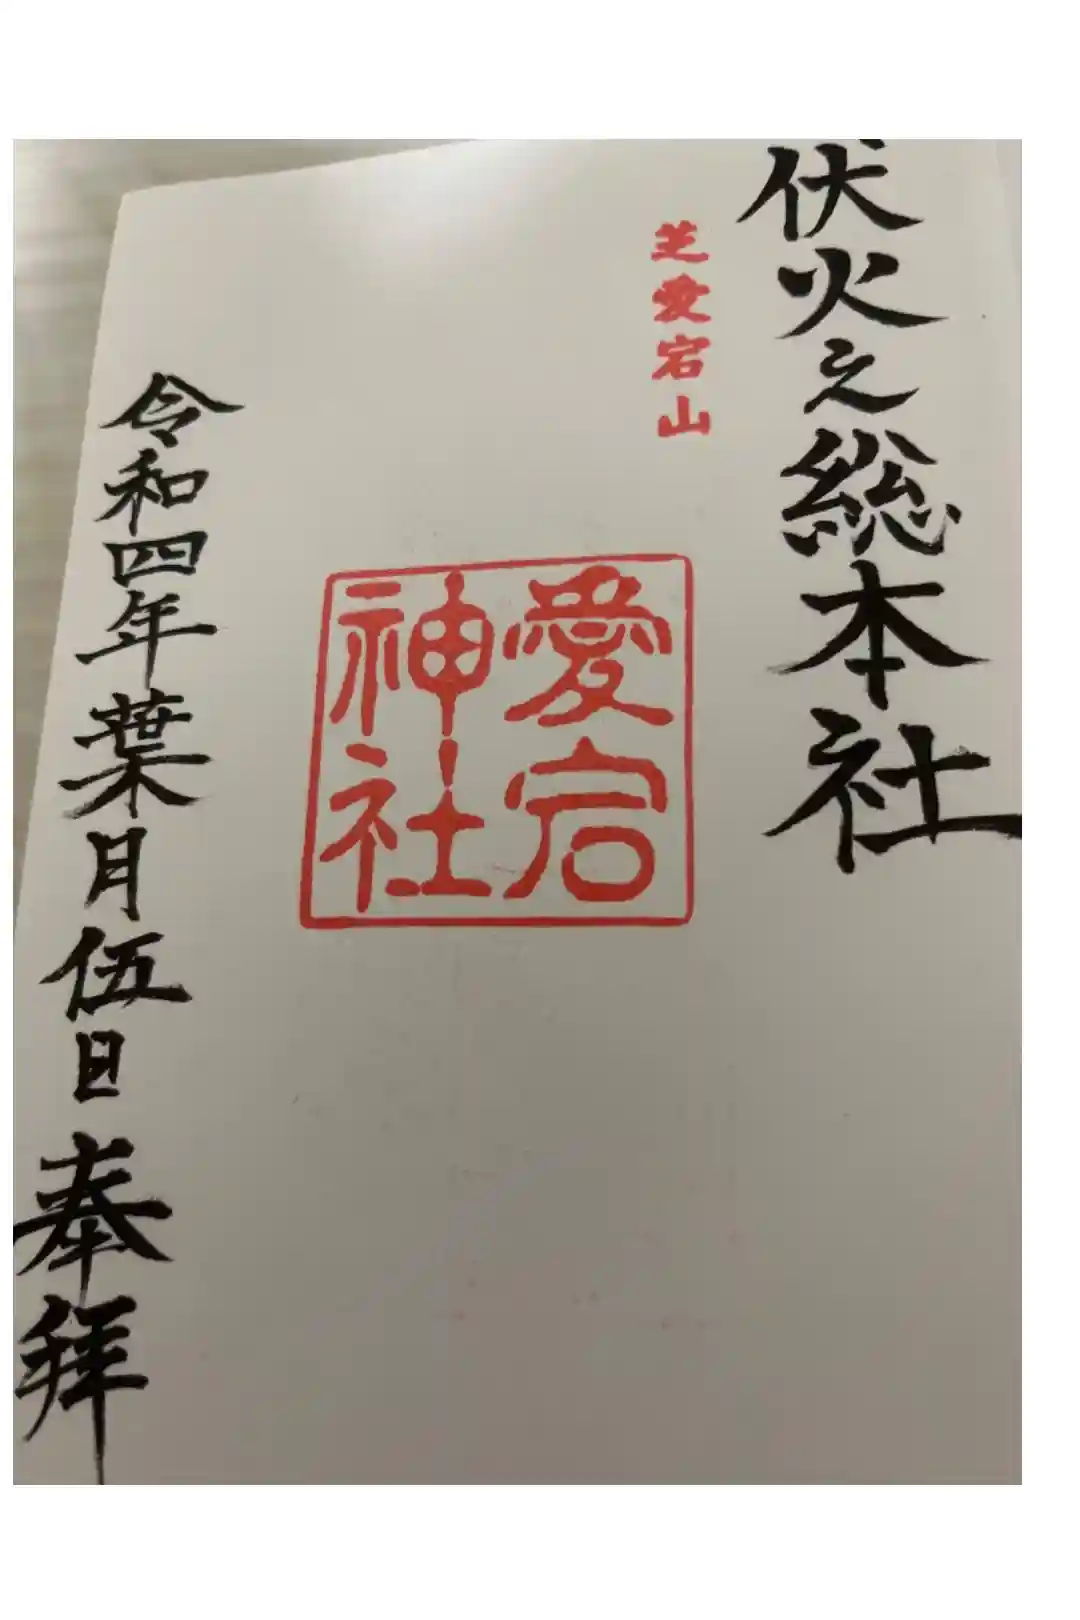 伏火之総本社
芝愛宕山
愛宕
神社
令和四年葉月伍日奉拜